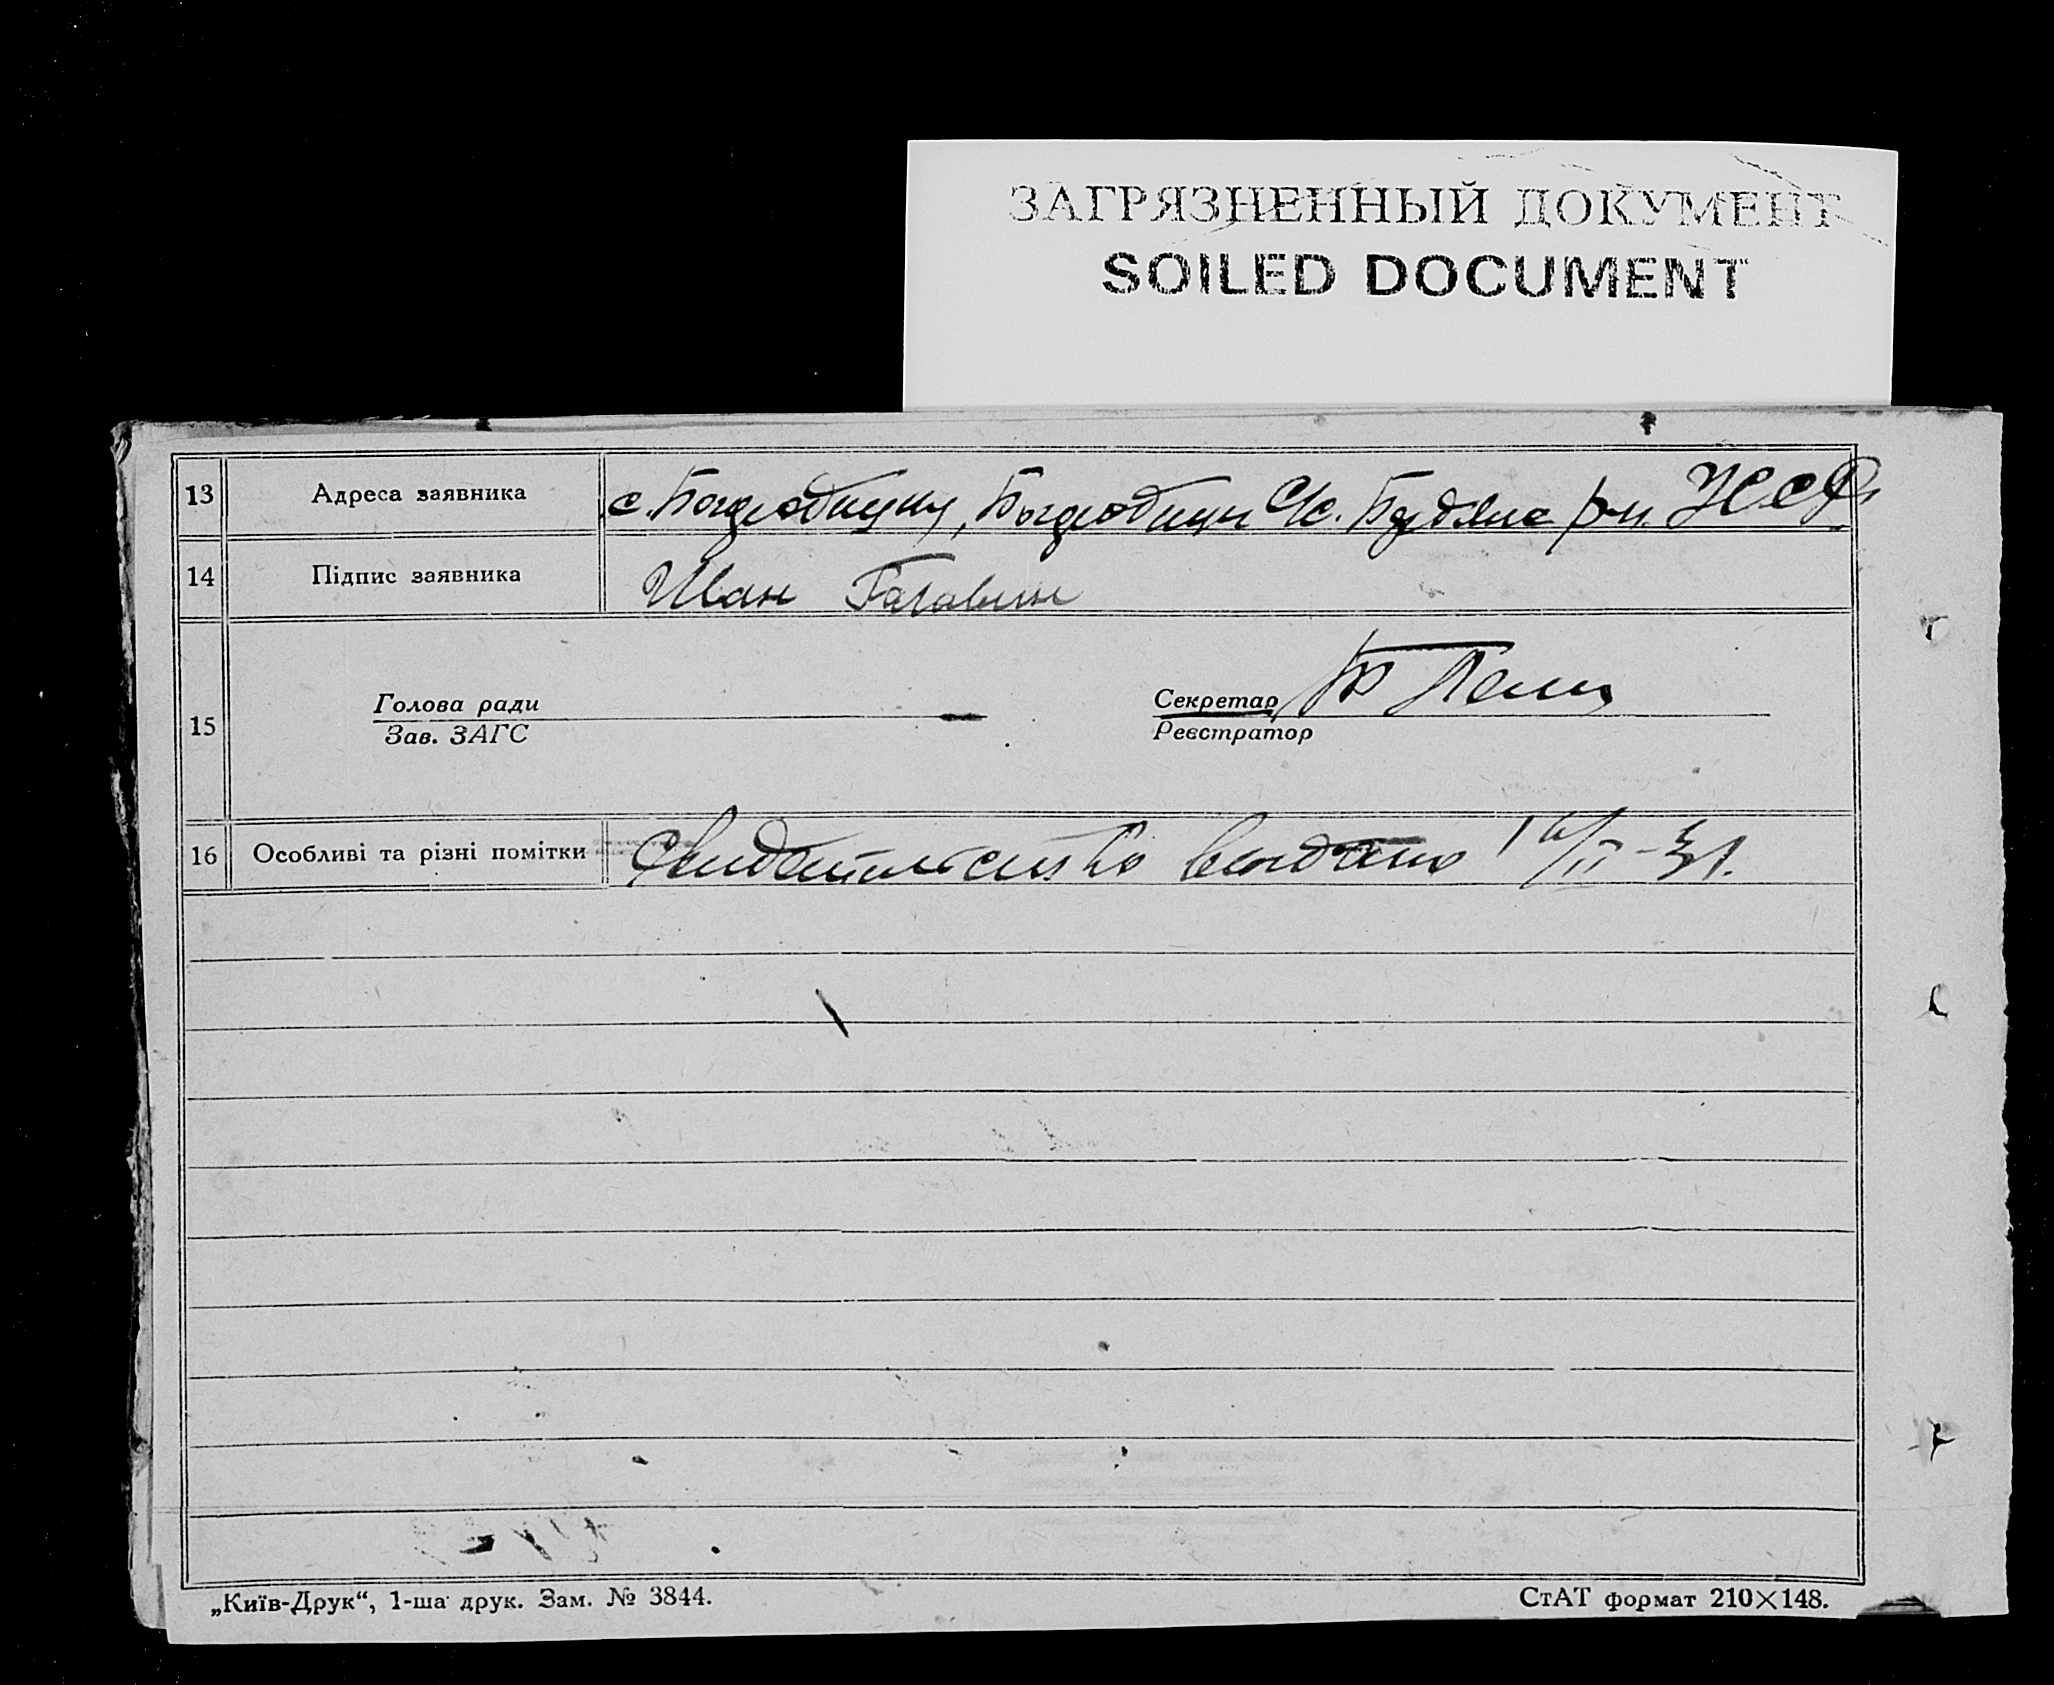 ЗАГРЯЗНЕННЫЙ ДОКУМЕНТ
SOILED DOCUMENT
13 Адреса заявника с.
14 Підпис заявника Иван
Голова ради Секретар
15
Зав. ЗАГС Реєстратор
16 Особливі та різні помітки Свидетельство выдано
„Київ-Друк“, 1-ша друк. Зам. № 3844. СтАТ формат 210×148.